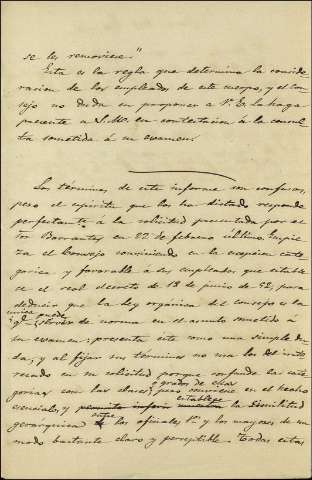 se les removiese."
Esta es la regla que determina la conside-
racion de los empleados de este cuerpo, y el Con-
sejo no duda en proponer a V. E. la haga
presente a S. M. en contestacion á la consul-
ta sometida á su examen.
Los términos de este informe son confusos,
pero el espíritu que los ha dictado responde
perfectamente á la solicitud presentada por el
Sor Barrantes en 22 de febrero último. Empie-
za el Consejo conviniendo en la escepcion cate-
gorica y favorable á sus empleados que estable-
ce el real decreto de 18 de junio de 52, para
deducir que la ley orgánica del Consejo es la
unica que puede
servir de norma en el asunto sometido á
su examen: presenta este como una simple du-
da, y al fijar sus términos no usa los del inte-
resado en su solicitud porque confunde la cate-
y grados de ellas
gorias con las clases; pero conviene en el hecho
establece
esencial, y la similitud
entre
gerarquica los oficiales 1os y los mayores de un
modo bastante claro y perceptible. Todas estas